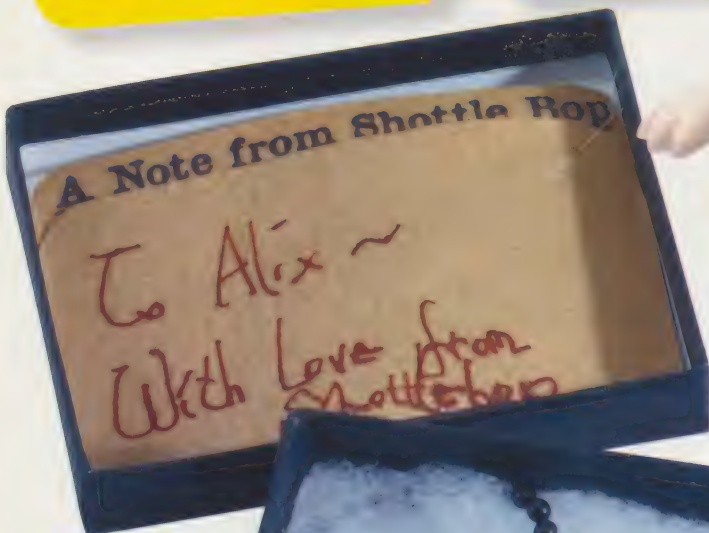 A Note from Shottle Bop
To Alix ~
With Love from
Shottlebop